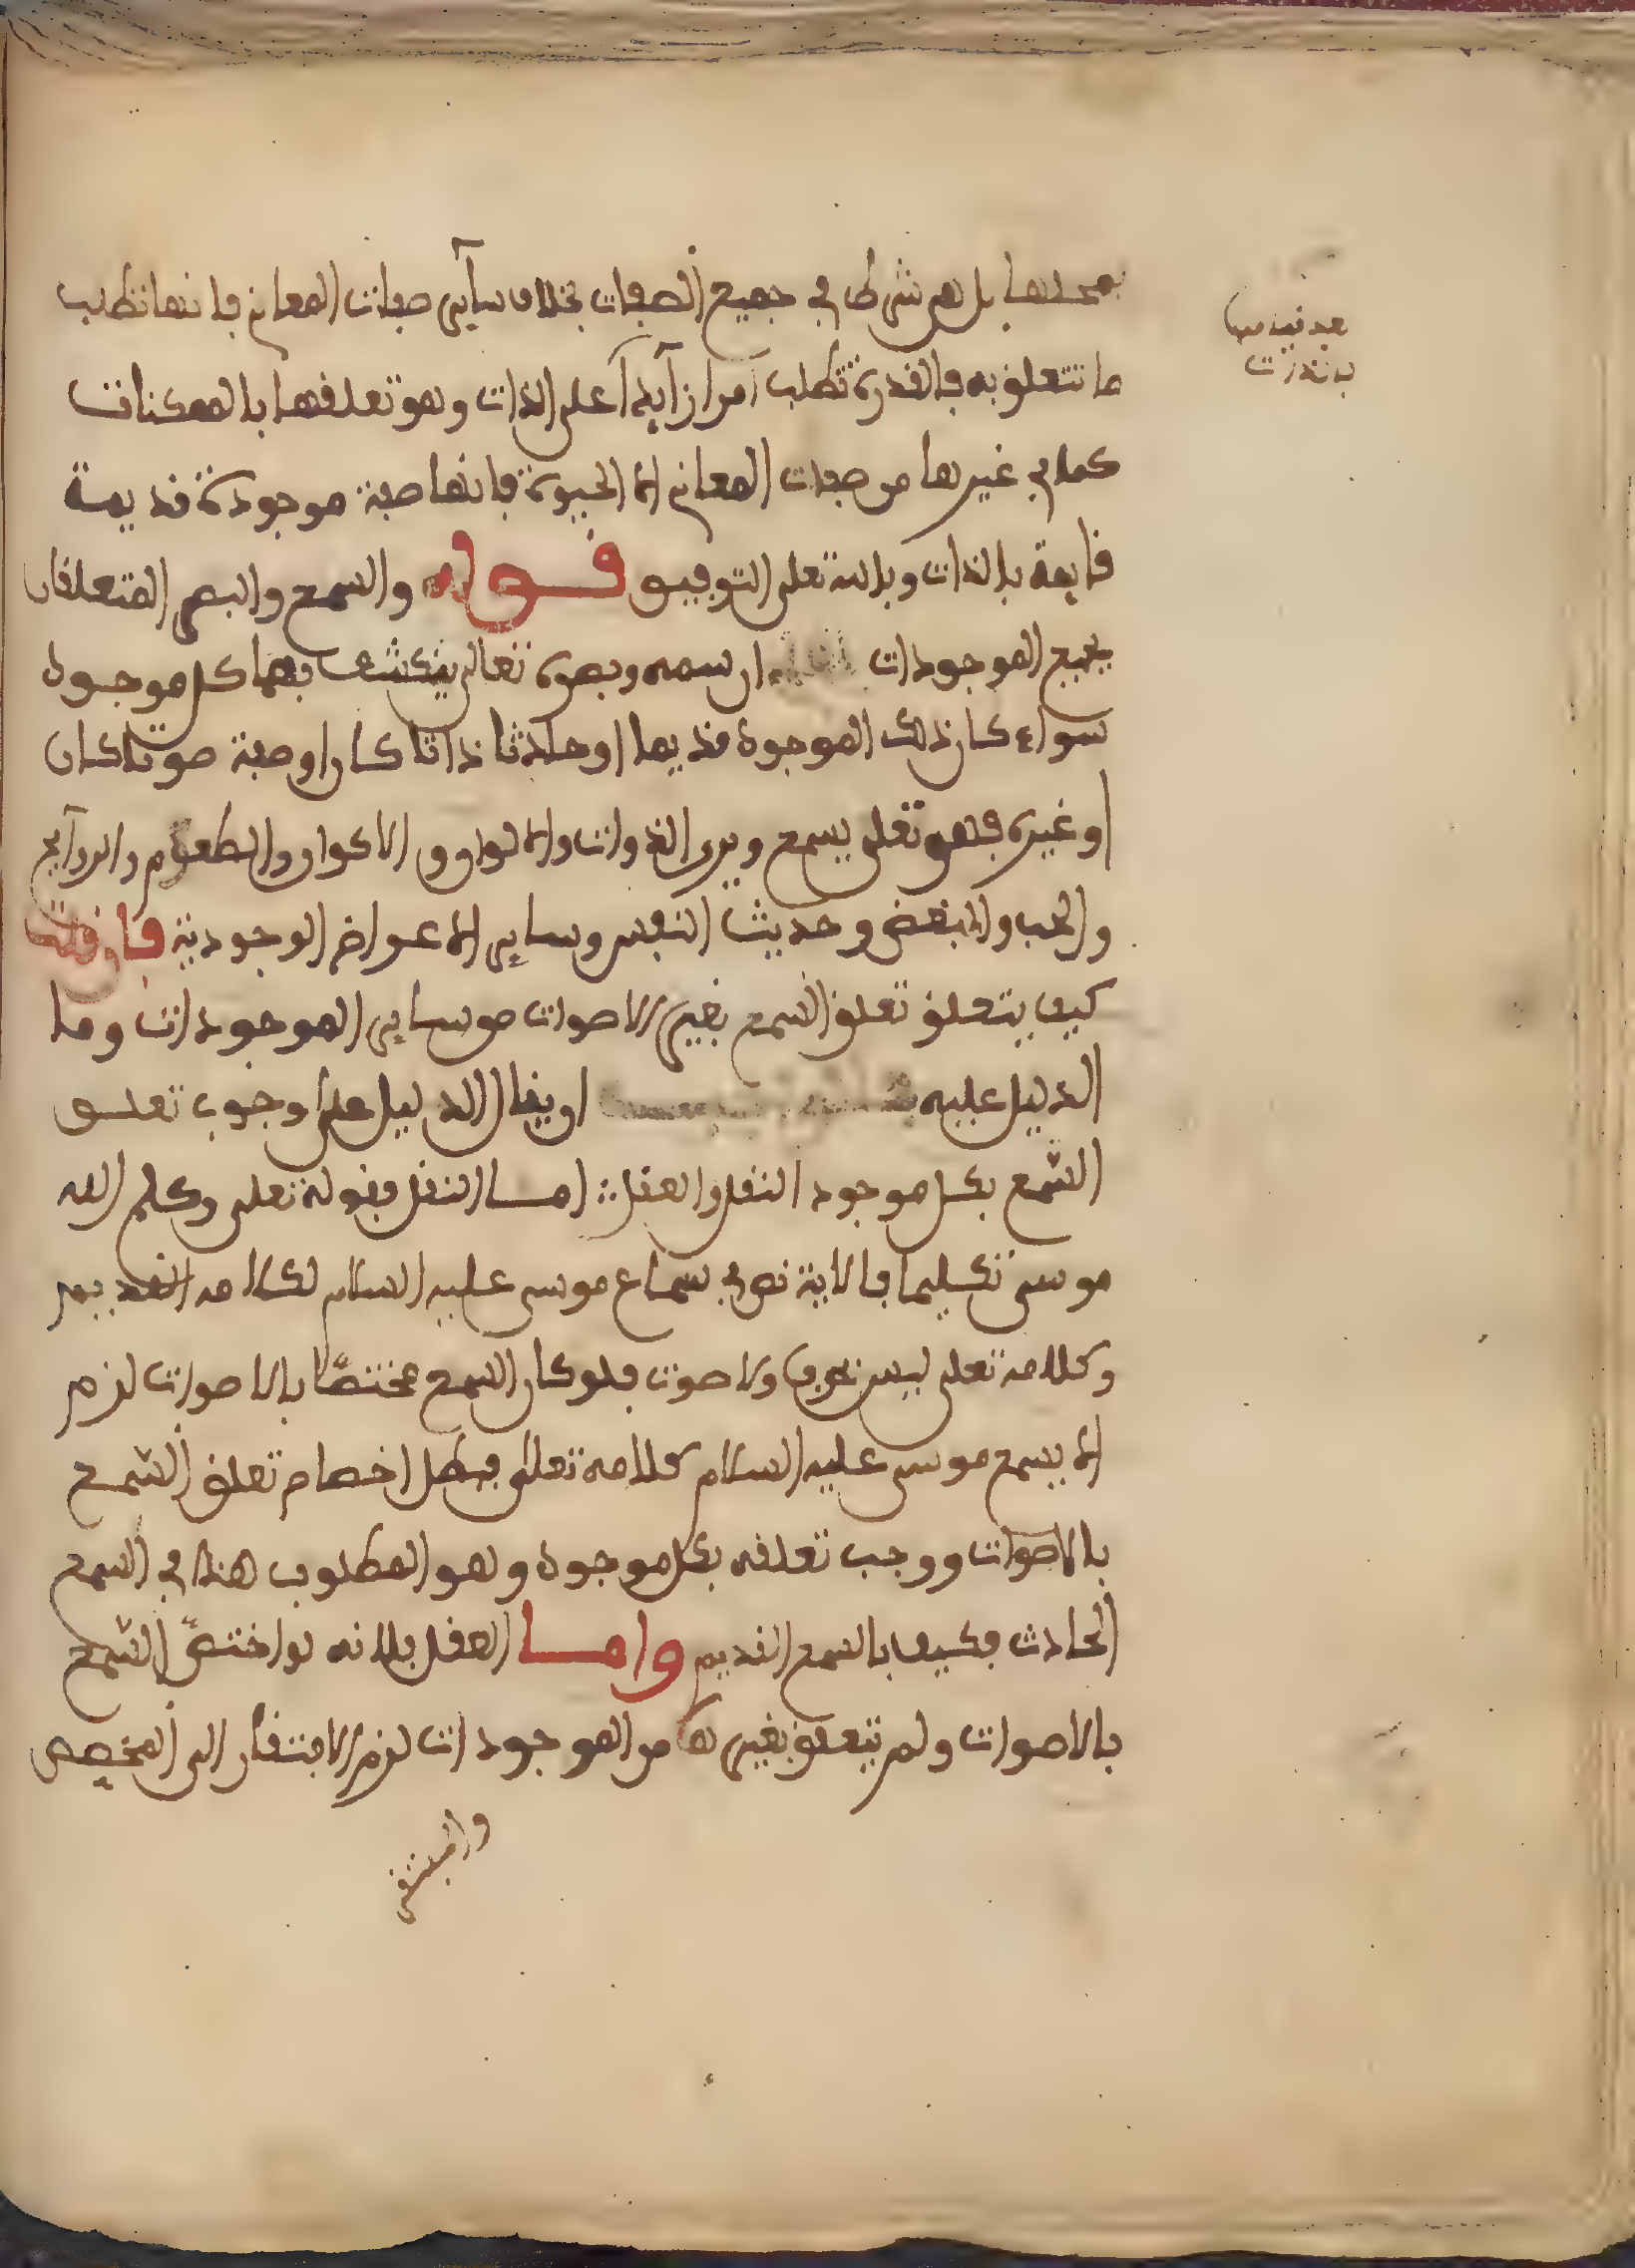 بمحلها بل هي شرط في جميع الصفات بخلاف سآير صفات المعاني فانها تطلب
ما تتعلق به فالقدرة تطلب امرا زآيدا على الذات وهو تعلقها بالممكنات
كما في غيرها من صفات المعاني الا الحيوة فانها صفة موجودة قديمة
قايمة بالذات وبالله تعلى التوفيق قوله والسمع والبصر المتعلقان
بجميع الموجودات ان سمعه وبصره تعالى ينكشف بهما كل موجود
سواء كان ذلك الموجود قديما او حادثا ذاتا كان او صفة صوتا كان
او غيره فهو تعلى يسمع ويرى الذوات والالوان والاكوان والطعوم والروآيح
والحب والبغض وحديث النفس وساير الاعراض الوجودية فان قلت
كيف يتعلق تعلق السمع بغير الاصوات من ساير الموجودات وما
الدليل عليه ان يقال الدليل على وجوب تعلق
السمع بكل موجود النقل والعقل اما النقل فقوله تعلى وكلم الله
موسى تكليما فالاية نص في سماع موسى عليه السلام لكلامه القديم
وكلامه تعلى ليس بحرف ولا صوت فلو كان السمع مختصا بالاصوات لزم
الا يسمع موسى عليه السلام كلامه تعالى فبطل اخصام تعلق السمع
بالاصوات ووجب تعلقه بكل موجود وهو المطلوب هذا في السمع
الحادث فكيف بالسمع القديم واما العقل فلانه لو اختص السمع
بالاصوات ولم يتعلق بغيرها من الموجودات لزم الافتقار الى المخصص